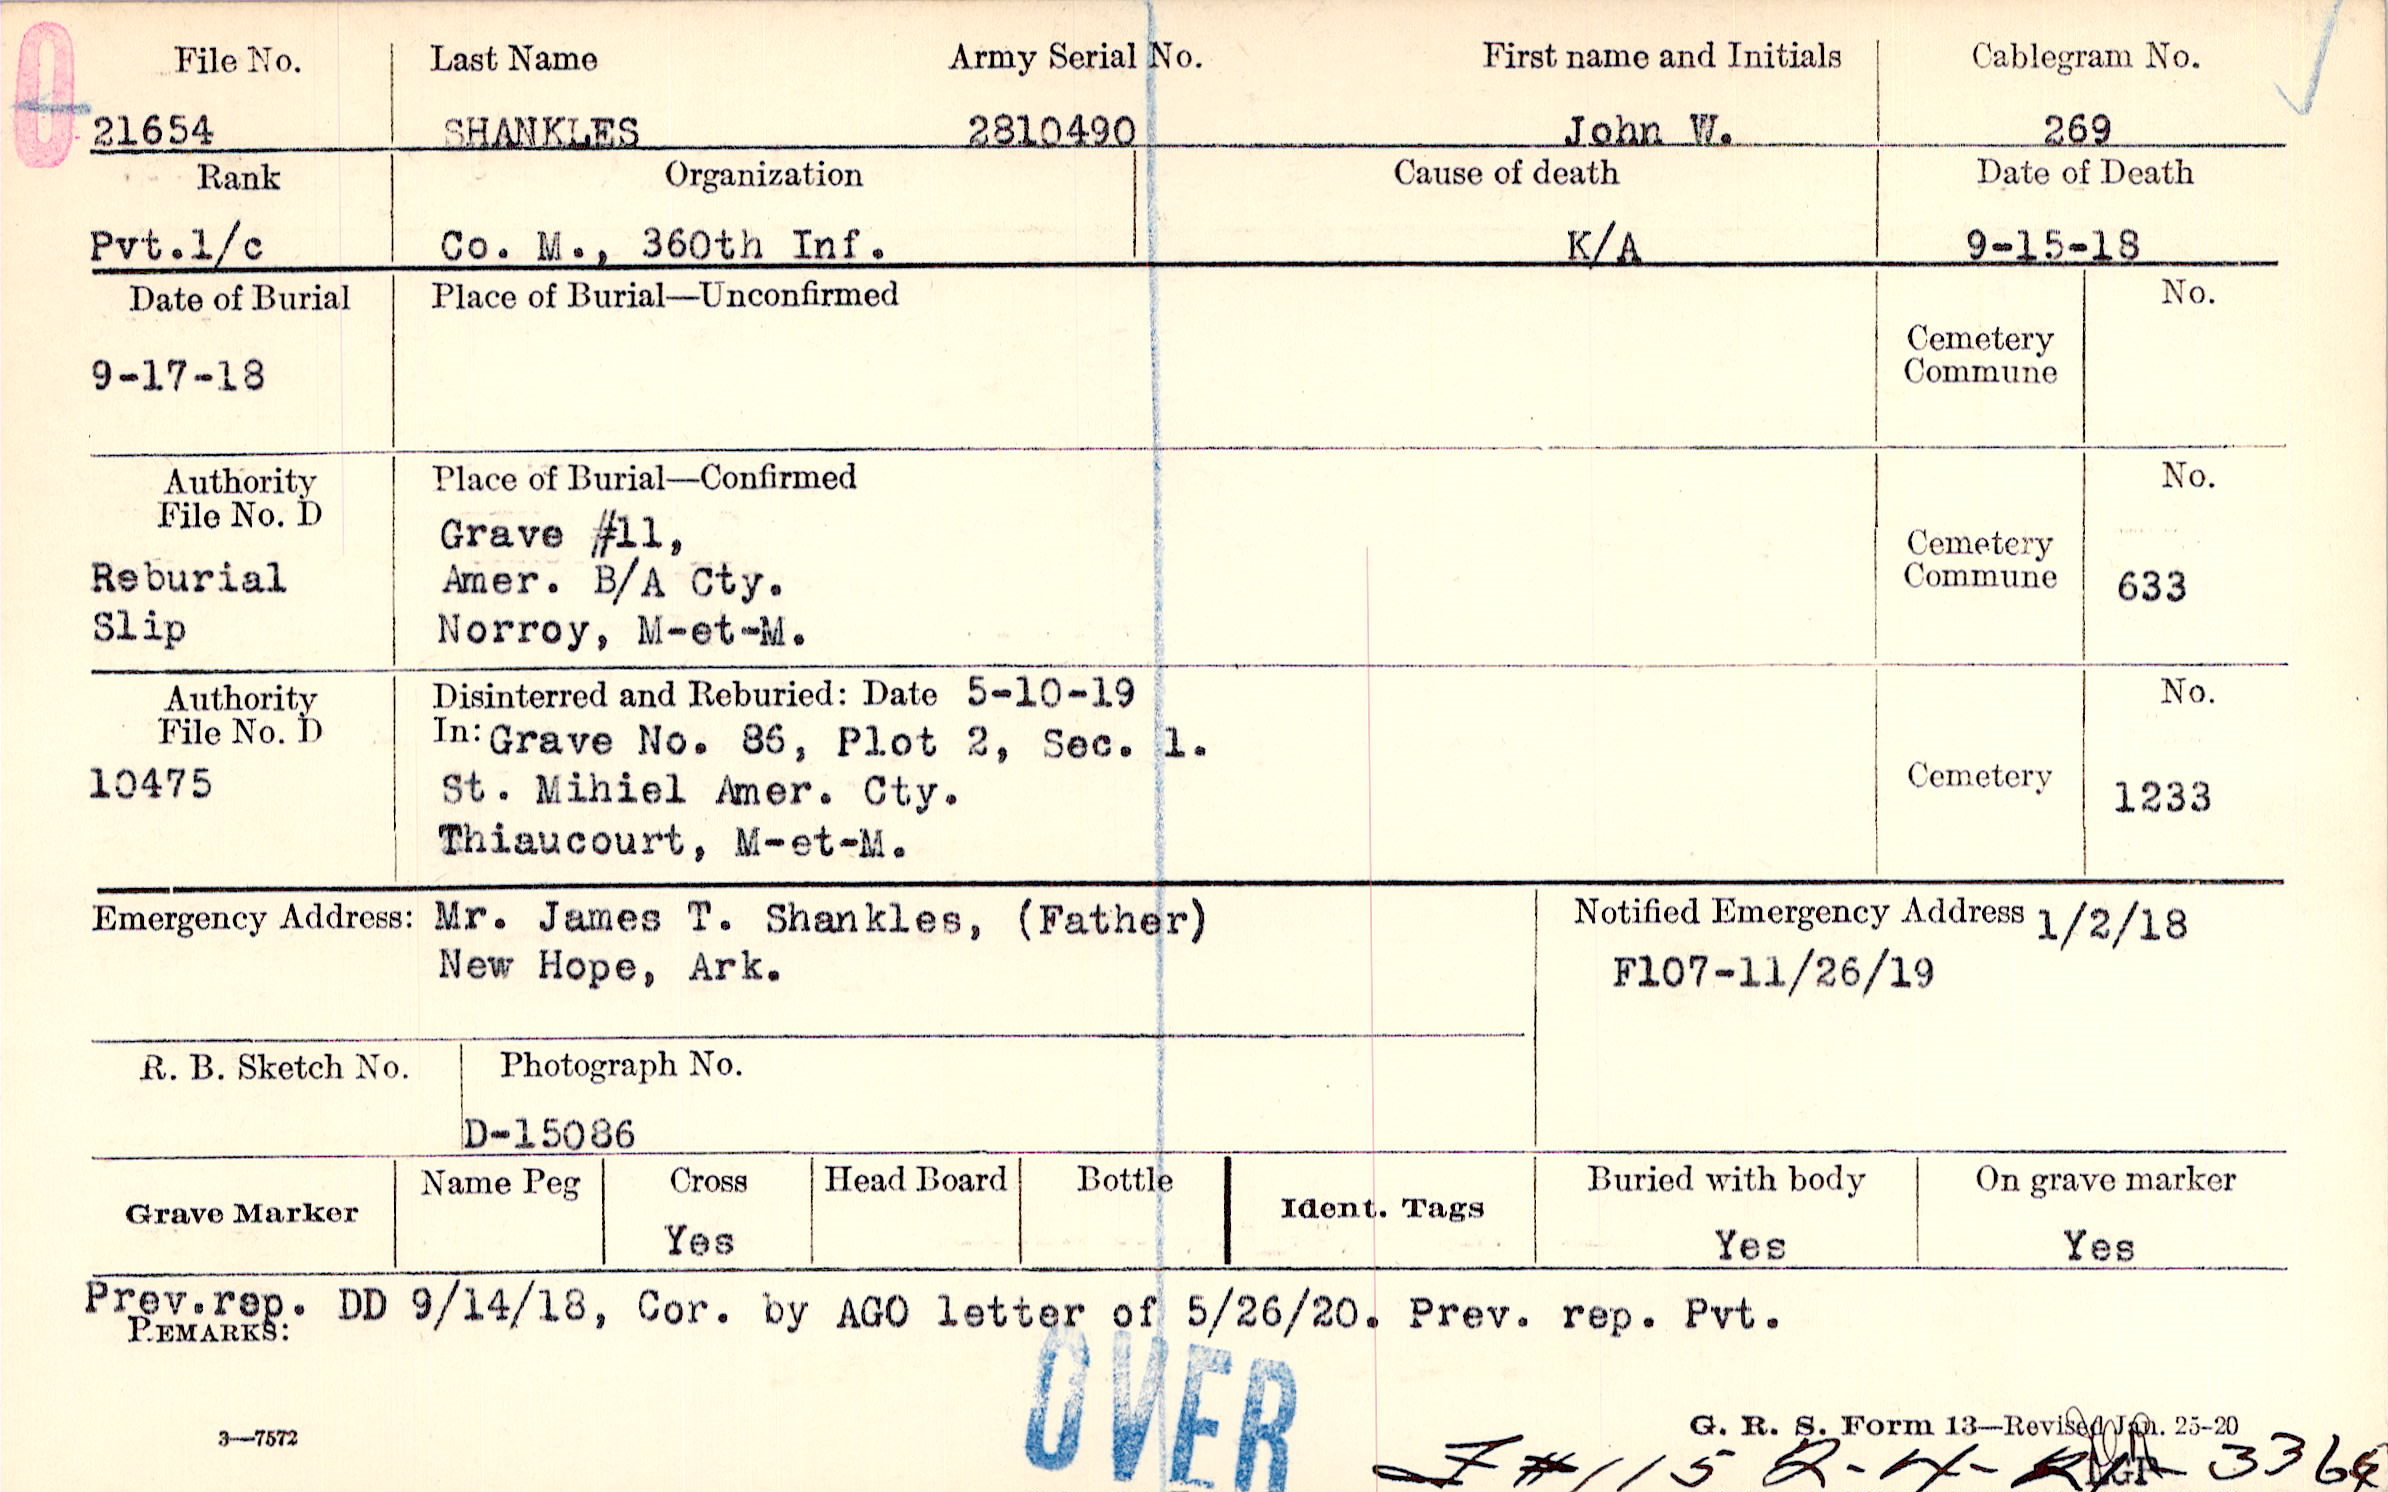 O
File No. Last Name Army Serial No. First name and Initials Cablegram No.
21654 SHANKLES 2810490 John W. 269
Rank Organization Cause of death Date of Death
Pvt.1/c Co. M., 360th Inf. K/A 9-15-18
Date of Burial Place of Burial—Unconfirmed No.
9-17-18 Cemetery
Commune
Authority Place of Burial—Confirmed No.
File No. D Grave #11,
Reburial Amer. B/A Cty. Cemetery
Commune 633
Slip Norroy, M-et-M.
Authority Disinterred and Reburied: Date 5-10-19 No.
File No. D In: Grave No. 86, Plot 2, Sec. 1.
10475 St. Mihiel Amer. Cty. Cemetery 1233
Thiaucourt, M-et-M.
Emergency Address: Mr. James T. Shankles, (Father) Notified Emergency Address 1/2/18
New Hope, Ark. F107-11/26/19
R. B. Sketch No. Photograph No.
D-15086
Grave Marker Name Peg Cross Head Board Bottle Ident. Tags Buried with body On grave marker
Yes Yes Yes
Prev.rep. DD 9/14/18, Cor. by AGO letter of 5/26/20. Prev. rep. Pvt.
REMARKS:
OVER
3—7572 G. R. S. Form 13—Revised Jan. 25-20
#115